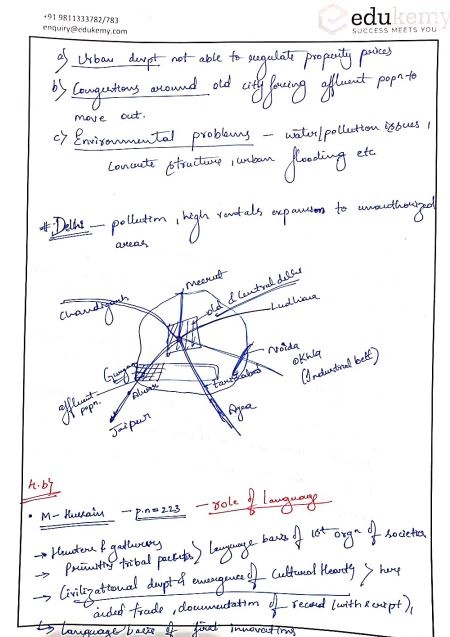 +91 9811333782/783
enquiry@edukemy.com
edukemy
SUCCESS MEETS YOU
a) Urban devpt not able to regulate property prices
b) Congestions around old city forcing affluent popn to
move out.
c) Environmental problems – water/pollution issues,
concrete structure, urban flooding etc
# Delhi – pollution, high rentals expansion to unauthorized
areas
Meerut
Chandigarh
old & Central delhi
Ludhiana
Noida
Okhla
(Industrial belt)
Gurgaon
Alwar
Faridabad
affluent
popn.
Jaipur
Agra
4.b)
• M- Hussain – p.n=223 – role of language
→ Hunters & gatherers
→ Primitive tribal pockets } language basis of 1st orgn of societies
→ Civilizational devpt & emergence of Cultural Hearths > here
aided trade, documentation of record (with script),
↳ language basis of first innovations